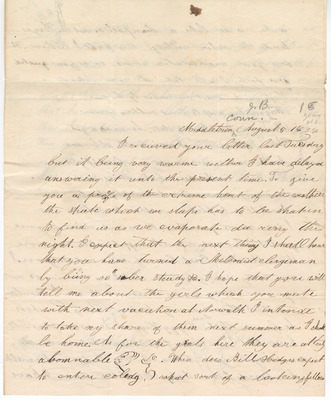 J.B.
Conn.
Middletown August 16
I received your letter last Tuesday
but it being very warm wether I have delayed
answering it until the present time. To give
you a proof of the extreme heat of the wether
the sheets which we sleep has to be shaken
to find us as we evaporate so very
night. I expect that the next thing I shall hear
that you have turned a Methodist clergeman
by being so sober steady &c. I hope that you will
tell me about the girls which you meete
with next vacation at Norwalk I intend
to take my share of them next summer as I shall
be home. As for the girls here they are all
abominable. When does Bill Hodges expect
to enter colledg what sort of a looking fellow